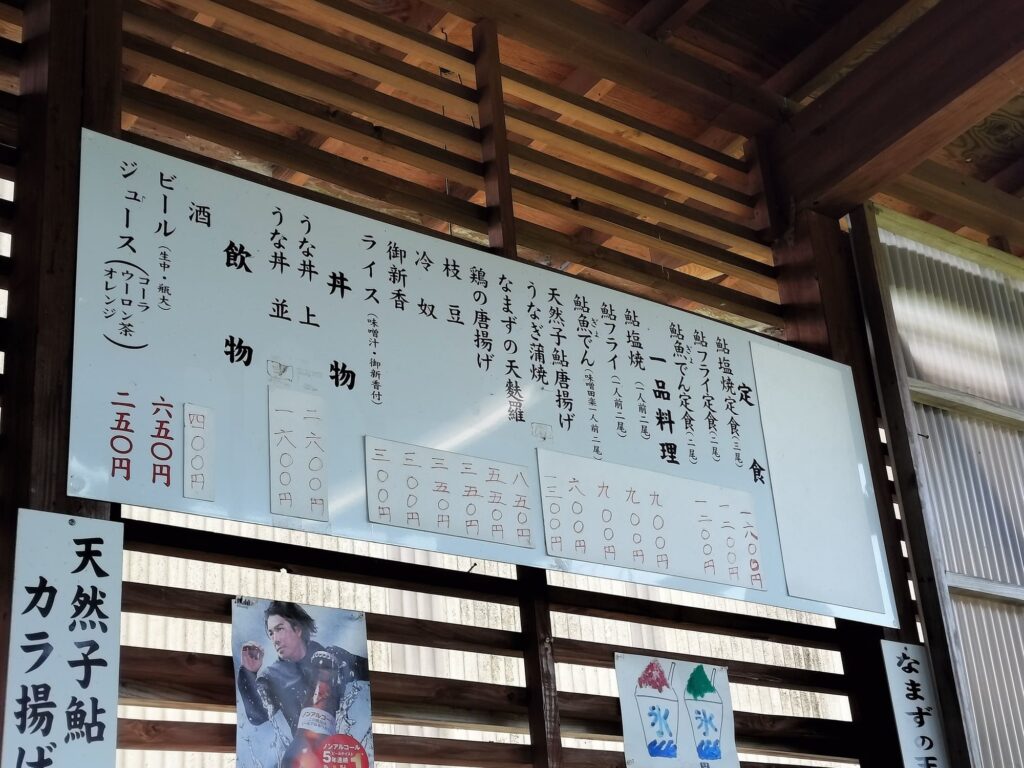 定食
鮎塩焼定食(三尾) 一六〇〇円
鮎フライ定食(二尾) 一二〇〇円
鮎魚でん定食(二尾) 一二〇〇円
ぎょ
一品料理
鮎塩焼(一人前二尾) 九〇〇円
鮎フライ(一人前二尾) 九〇〇円
鮎魚でん(味噌田楽一人前二尾) 九〇〇円
ぎょ
天然子鮎唐揚げ 六〇〇円
うなぎ蒲焼 一三〇〇円
なまずの天麩羅 八五〇円
鶏の唐揚げ 五五〇円
枝豆 三五〇円
冷奴 三五〇円
御新香 三〇〇円
ライス(味噌汁・御新香付) 三〇〇円
丼物
うな丼 上 二六〇〇円
うな丼 並 一六〇〇円
飲物
酒 四〇〇円
ビール(生中・瓶大) 六五〇円
ジュース(コーラ ウーロン茶 オレンジ) 二五〇円
天然子鮎
カラ揚げ
ノンアルコール
5年連続
氷
氷
なまずの天